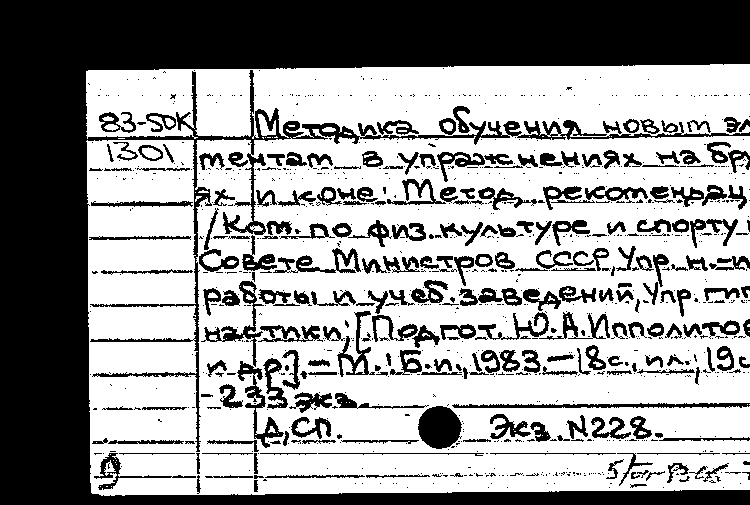 83-5DK Методика обучения новым эл
1301 ментам в упражнениях на бру
ях и коне: Метод. рекомендац
/Ком. по физ. культуре и спорту
Совете Министров СССР, Упр. н.-и
работы и учеб. заведений, Упр. гим
настики; [Подгот. Ю.А.Ипполитов
и др.]. – М.: Б.и., 1983. – 18с., ил.; 19с
- 233 экз.
Д,СП. Экз. N228.
9